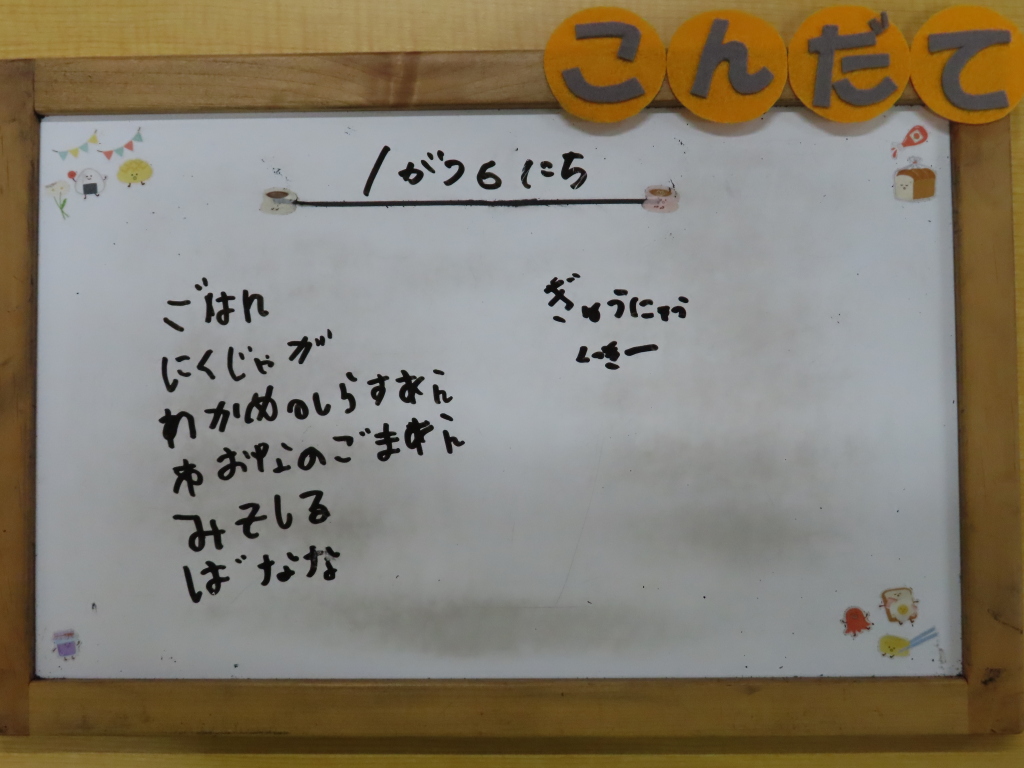 こんだて
1がつ6にち
ごはん
にくじゃが
わかめのしらすあえ
のごまあえ
みそしる
ばなな
ぎゅうにゅう
くっきー